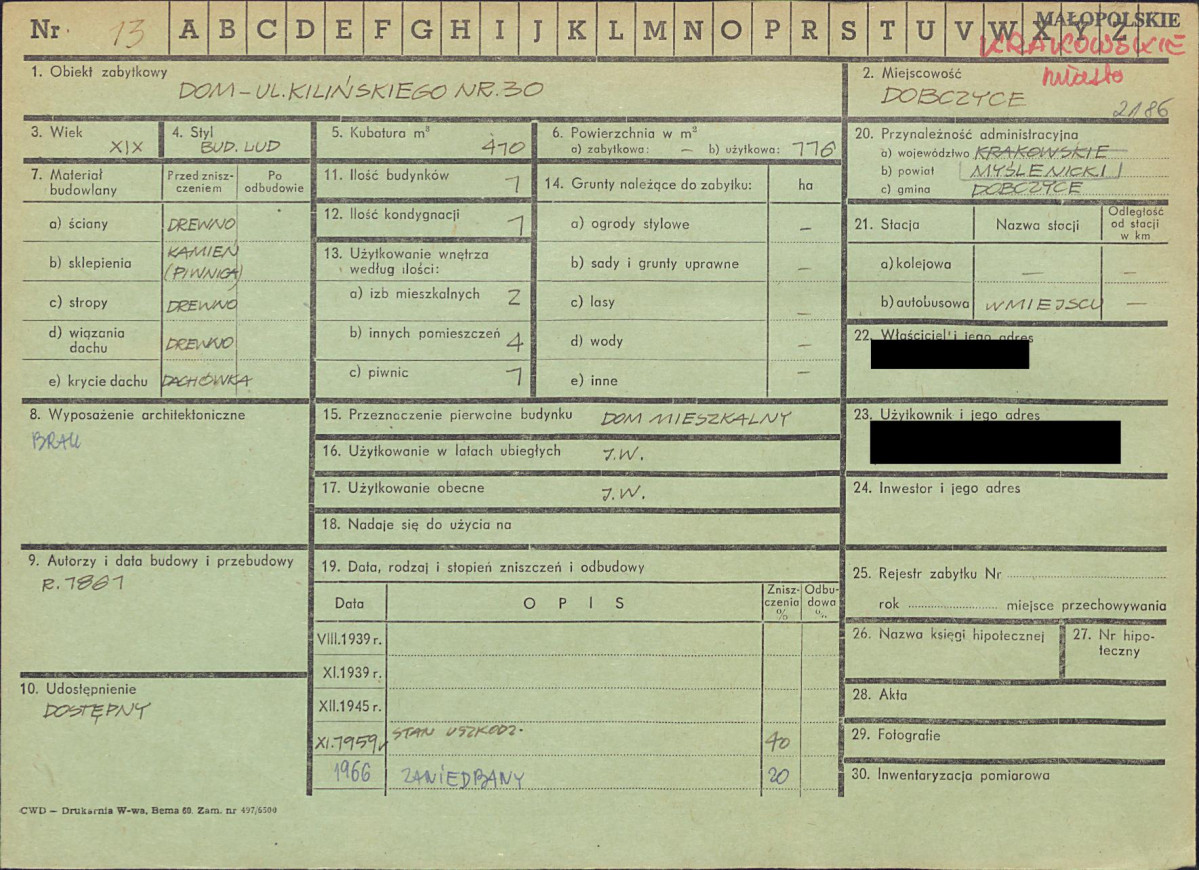 Nr 13 A B C D E F G H I J K L M N O P R S T U V W X Y Z
MAŁOPOLSKIE
KRAKOWSKIE
miasto
1. Obiekt zabytkowy
DOM-UL. KILIŃSKIEGO NR. 30
2. Miejscowość
DOBCZYCE
2186
3. Wiek
XIX
4. Styl
BUD. LUD
5. Kubatura m³
410
6. Powierzchnia w m²
a) zabytkowa: — b) użytkowa: 116
7. Materiał budowlany
Przed zniszczeniem
Po odbudowie
a) ściany DREWNO
b) sklepienia KAMIEŃ (PIWNICA)
c) stropy DREWNO
d) wiązania dachu DREWNO
e) krycie dachu DACHÓWKA
8. Wyposażenie architektoniczne
BRAK
9. Autorzy i data budowy i przebudowy
R. 1861
10. Udostępnienie
DOSTĘPNY
11. Ilość budynków 1
12. Ilość kondygnacji 1
13. Użytkowanie wnętrza według ilości:
a) izb mieszkalnych 2
b) innych pomieszczeń 4
c) piwnic 1
14. Grunty należące do zabytku: ha
a) ogrody stylowe —
b) sady i grunty uprawne —
c) lasy —
d) wody —
e) inne —
15. Przeznaczenie pierwotne budynku DOM MIESZKALNY
16. Użytkowanie w latach ubiegłych J.W.
17. Użytkowanie obecne J.W.
18. Nadaje się do użycia na
19. Data, rodzaj i stopień zniszczeń i odbudowy
Data
O P I S
Zniszczenia %
Odbudowa %
VIII.1939 r.
XI.1939 r.
XII.1945 r.
XI.1959 r STAN USZKODZ. 40
1966 ZANIEDBANY 20
20. Przynależność administracyjna
a) województwo KRAKOWSKIE
b) powiat MYŚLENICKI
c) gmina DOBCZYCE
21. Stacja
Nazwa stacji
Odległość od stacji w km
a) kolejowa — —
b) autobusowa W MIEJSCU —
22. Właściciel i jego adres
23. Użytkownik i jego adres
24. Inwestor i jego adres
25. Rejestr zabytku Nr
rok miejsce przechowywania
26. Nazwa księgi hipotecznej
27. Nr hipoteczny
28. Akta
29. Fotografie
30. Inwentaryzacja pomiarowa
CWD — Drukarnia W-wa, Bema 60. Zam. nr 497/6500